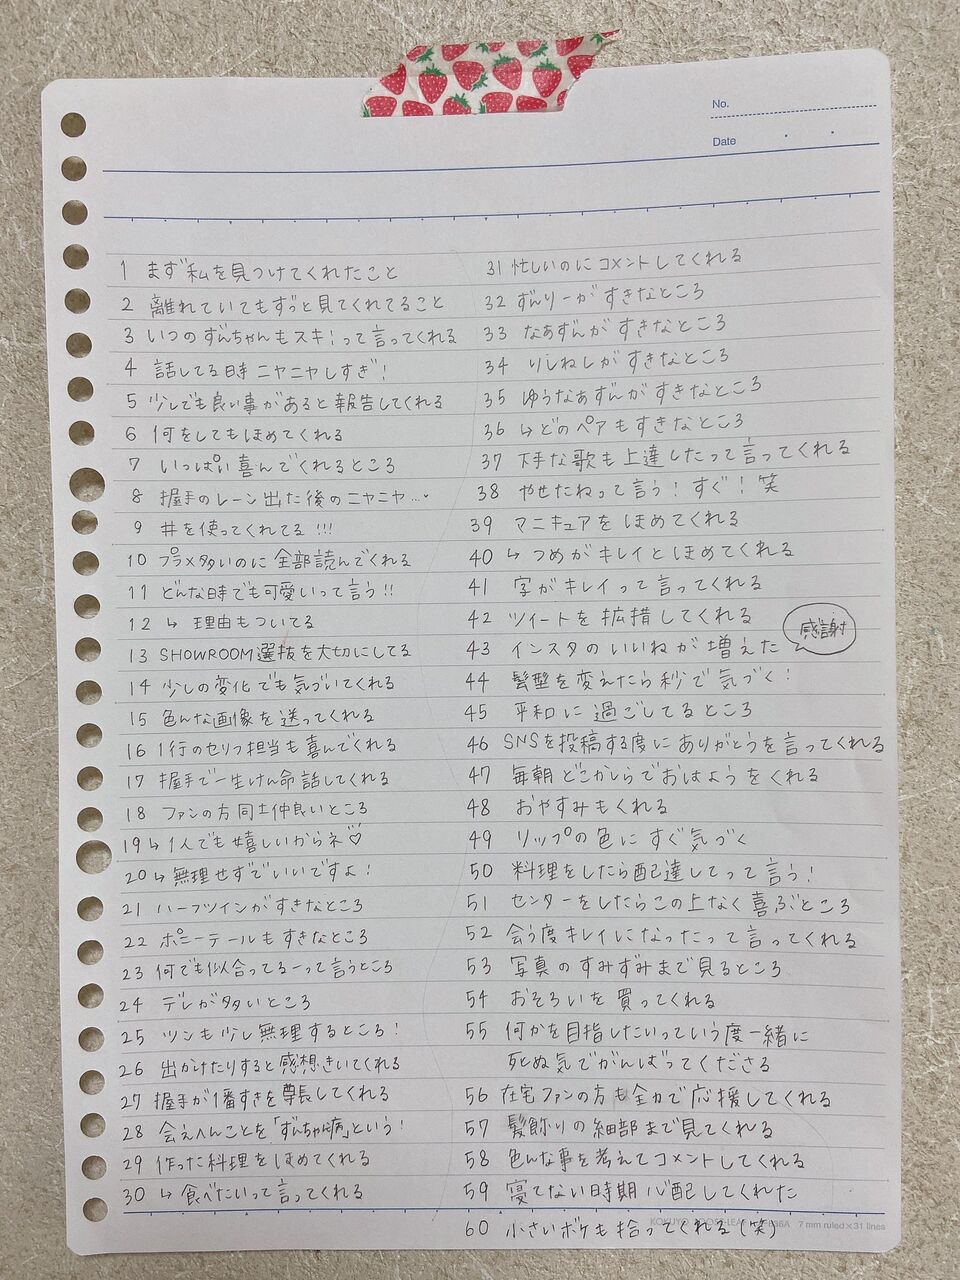 No.
Date
1 まず私を見つけてくれたこと
2 離れていてもずっと見てくれてること
3 いつのずんちゃんもスキ！って言ってくれる
4 話してる時ニヤニヤしすぎ！
5 少しでも良い事があると報告してくれる
6 何をしてもほめてくれる
7 いっぱい喜んでくれるところ
8 握手のレーン出た後のニヤニヤ…
9 #を使ってくれてる!!!
10 プラメ多いのに全部読んでくれる
11 どんな時でも可愛いって言う!!
12 ↳ 理由もついてる
13 SHOWROOM選抜を大切にしてる
14 少しの変化でも気づいてくれる
15 色んな画像を送ってくれる
16 1行のセリフ担当も喜んでくれる
17 握手で一生けん命話してくれる
18 ファンの方同士仲良いところ
19 ↳ 1人でも嬉しいからネ♡
20 ↳ 無理せずでいいですよ！
21 ハーフツインがすきなところ
22 ポニーテールもすきなところ
23 何でも似合ってるーって言うところ
24 デレが多いところ
25 ツンも少し無理するところ！
26 出かけたりすると感想きいてくれる
27 握手が1番すきを尊長してくれる
28 会えへんことを「ずんちゃん病」という！
29 作った料理をほめてくれる
30 ↳ 食べたいって言ってくれる
31 忙しいのにコメントしてくれる
32 ずんりーがすきなところ
33 なぁずんがすきなところ
34 りしねしがすきなところ
35 ゆうなぁずんがすきなところ
36 ↳ どのペアもすきなところ
37 下手な歌も上達したって言ってくれる
38 やせたねって言う！すぐ！笑
39 マニキュアをほめてくれる
40 ↳ つめがキレイとほめてくれる
41 字がキレイって言ってくれる
42 ツイートを拡措してくれる
43 インスタのいいねが増えた
感謝
44 髪型を変えたら秒で気づく！
45 平和に過ごしてるところ
46 SNSを投稿する度にありがとうを言ってくれる
47 毎朝どこかしらでおはようをくれる
48 おやすみもくれる
49 リップの色にすぐ気づく
50 料理をしたら配達してって言う！
51 センターをしたらこの上なく喜ぶところ
52 会う度キレイになったって言ってくれる
53 写真のすみずみまで見るところ
54 おそろいを買ってくれる
55 何かを目指したいっていう度一緒に
死ぬ気でがんばってくださる
56 在宅ファンの方も全力で応援してくれる
57 髪飾りの細部まで見てくれる
58 色んな事を考えてコメントしてくれる
59 寝てない時期心配してくれた
60 小さいボケも拾ってくれる(笑)
7 mm ruled×31 lines